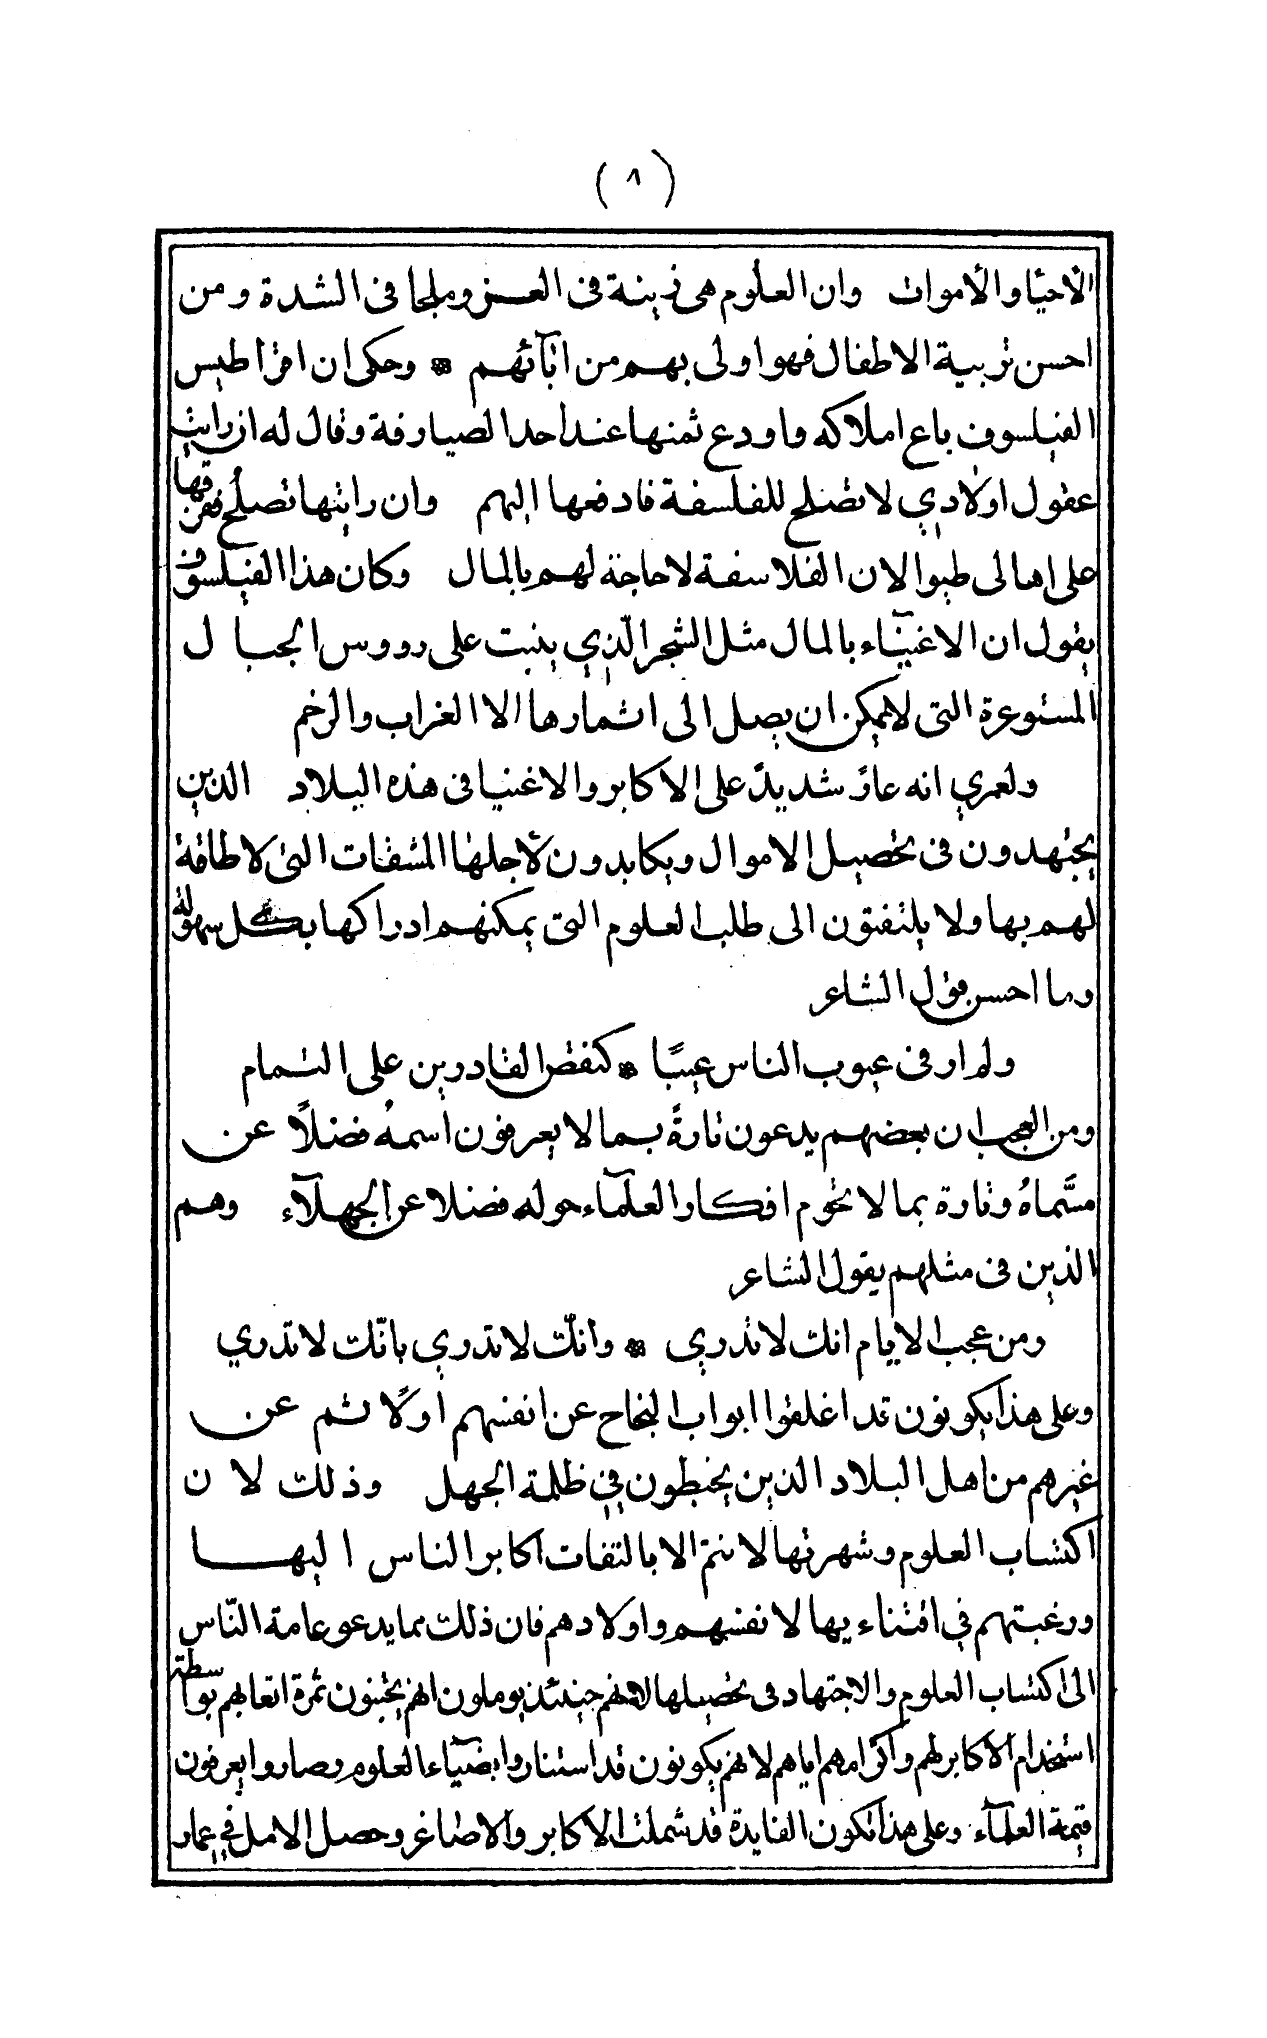 (٨)
الأحيا والأموات وان العلوم هى زينة فى العز وملجا فى الشدة ومن
احسن تربية الاطفال فهوا ولى بهم من اٰبآئهم * وحكى ان اقراطيس
الفيلسوف باع املاكه واودع ثمنها عند احد الصيارفة وقال له ان رايت
عقول اولادي لا تصلح للفلسفة فادفعها اليهم وان رايتها تصلح ففرقها
على اهالى طيوا لان الفلاسفة لا حاجة لهم بالمال وكان هذا الفيلسوف
يقول ان الاغنيآء بالمال مثل الشجر الّذي ينبت على رووس الجبال
المستوعرة التى لا يمكن ان يصل الى اثمارها الا الغراب والرخم
ولعمري انه عارٌ شديدٌ على الاكابر والاغنيا فى هذه البلاد الذين
يجتهدون فى تحصيل الاموال ويكابدون لأجلها المشقات التى لا طاقة
لهم بها ولا يلتفتون الى طلب العلوم التى يمكنهم ادراكها بكل سهولة
وما احسن قول الشاعر
ولم ار فى عيوب الناس عيبًا * كنقض القادرين على التمام
ومن العجب ان بعضهم يدعون تارةً بما لا يعرفون اسمهُ فضلاً عن
مسَّماهُ وتارة بما لا تحوم افكار العلمآء حوله فضلا عن الجهلآء وهم
الذين فى مثلهم يقول الشاعر
ومن عجب الايام انك لا تدري * وانّك لا تدري بانّك لا تدري
وعلى هذا يكونون قد اغلقوا ابواب النجاح عن انفسهم اولاً ثم عن
غيرهم من اهل البلاد الذين يخبطون في ظلمة الجهل وذلك لان
اكتساب العلوم وشهرتها لا تتمّ الا بالتفات اكابر الناس اليها
ورغبتهم في اقتناءيها لانفسهم واولادهم فان ذلك مما يدعو عامة النّاس
الى اكتساب العلوم والاجتهاد فى تحصيلها لانهم حينئذ يوملون انهم يجتنون ثمرة اتعابهم بواسطة
استخدام الأكابر لهم وأكرامهم اياهم لانهم يكونون قد استناروا بضيآء العلوم وصاروا يعرفون
قيمة العلمآء وعلى هذا تكون الفايدة قد شملت الأكابر والاصاغر وحصل الامل في عمار